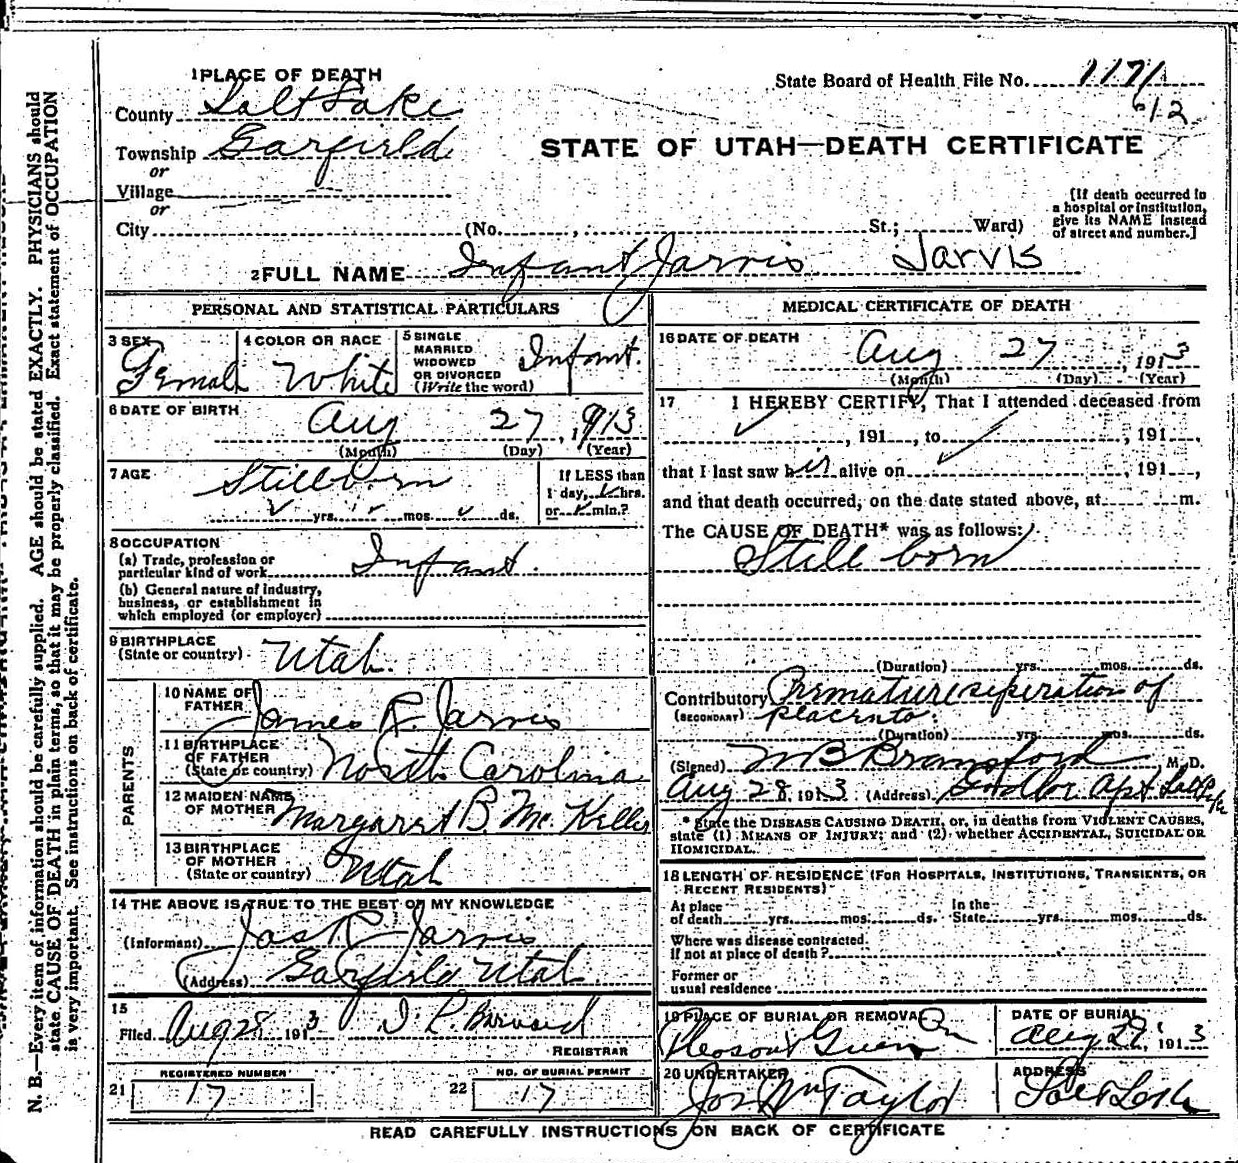 1 PLACE OF DEATH
State Board of Health File No. 1171
612
County Salt Lake
Township Garfield
STATE OF UTAH—DEATH CERTIFICATE
or
Village
or
City (No. , St.; Ward)
[If death occurred in
a hospital or institution,
give its NAME instead
of street and number.]
2 FULL NAME Infant Jarvis Jarvis
PERSONAL AND STATISTICAL PARTICULARS
3 SEX
Female
4 COLOR OR RACE
White
5 SINGLE
MARRIED
WIDOWED
OR DIVORCED
(Write the word)
Infant.
6 DATE OF BIRTH
Aug 27, 1913
(Month) (Day) (Year)
7 AGE
Stillborn
yrs. mos. ds.
If LESS than
1 day, hrs.
or min.?
8 OCCUPATION
(a) Trade, profession or
particular kind of work Infant.
(b) General nature of industry,
business, or establishment in
which employed (or employer)
9 BIRTHPLACE
(State or country) Utah.
PARENTS
10 NAME OF
FATHER James R. Jarvis
11 BIRTHPLACE
OF FATHER
(State or country) North Carolina
12 MAIDEN NAME
OF MOTHER Margaret B. Mc
13 BIRTHPLACE
OF MOTHER
(State or country) Utah
14 THE ABOVE IS TRUE TO THE BEST OF MY KNOWLEDGE
(Informant) Jas R Jarvis
(Address) Garfield Utah
15
Filed Aug 28 1913
REGISTRAR
REGISTERED NUMBER
21 17
NO. OF BURIAL PERMIT
22 17
MEDICAL CERTIFICATE OF DEATH
16 DATE OF DEATH
Aug 27, 1913
(Month) (Day) (Year)
17 I HEREBY CERTIFY, That I attended deceased from
, 191 , to , 191 ,
that I last saw h alive on , 191 ,
and that death occurred, on the date stated above, at m.
The CAUSE OF DEATH* was as follows:
Still born
(Duration) yrs. mos. ds.
Contributory Premature seperation of
(SECONDARY) placenta.
(Duration) yrs. mos. ds.
(Signed) M B Bransford, M. D.
Aug 28, 1913 (Address) Apt Salt Lake
* State the DISEASE CAUSING DEATH, or, in deaths from VIOLENT CAUSES,
state (1) MEANS OF INJURY; and (2) whether ACCIDENTAL, SUICIDAL OR
HOMICIDAL.
18 LENGTH OF RESIDENCE (FOR HOSPITALS, INSTITUTIONS, TRANSIENTS, OR
RECENT RESIDENTS)
At place
of death yrs. mos. ds.
In the
State yrs. mos. ds.
Where was disease contracted.
If not at place of death?
Former or
usual residence
19 PLACE OF BURIAL OR REMOVAL
Pleasant Green
DATE OF BURIAL
Aug , 1913
20 UNDERTAKER
Jos Wm Taylor
ADDRESS
Salt Lake
READ CAREFULLY INSTRUCTIONS ON BACK OF CERTIFICATE
N. B.—Every item of information should be carefully supplied. AGE should be stated EXACTLY. PHYSICIANS should
state CAUSE OF DEATH in plain terms, so that it may be properly classified. Exact statement of OCCUPATION
is very important. See instructions on back of certificate.